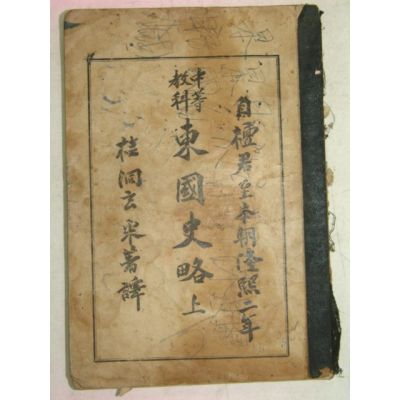 自檀君至本朝隆熙二年
中等
教科
東國史略 上
桂洞玄采著譯